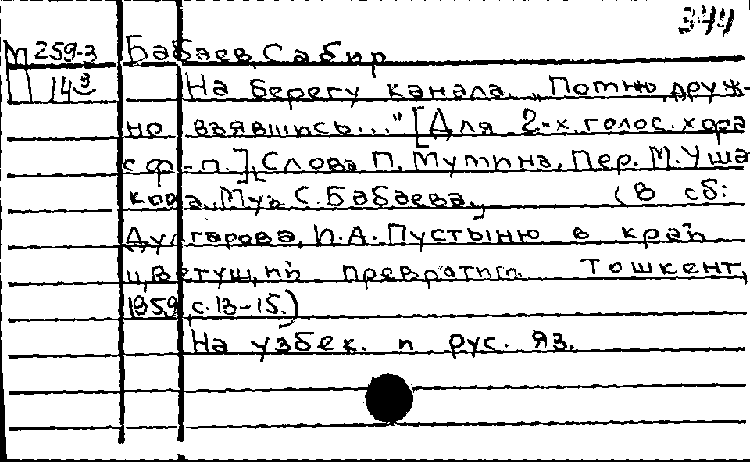 344
М 259-3 Бабаев, Сабир
14 На берегу канала. „Помню, друж-
но взявшись..." [Для 2-х голос. хора
с ф-п.], Слова П. Мумина, Пер. М. Уша
кова, Муз. С. Бабаева, (В сб:
Дулгарова, И.А. Пустыню в край
цветущий превратим. Тошкент,
1959, с. 13-15.)
На узбек. и рус. яз.